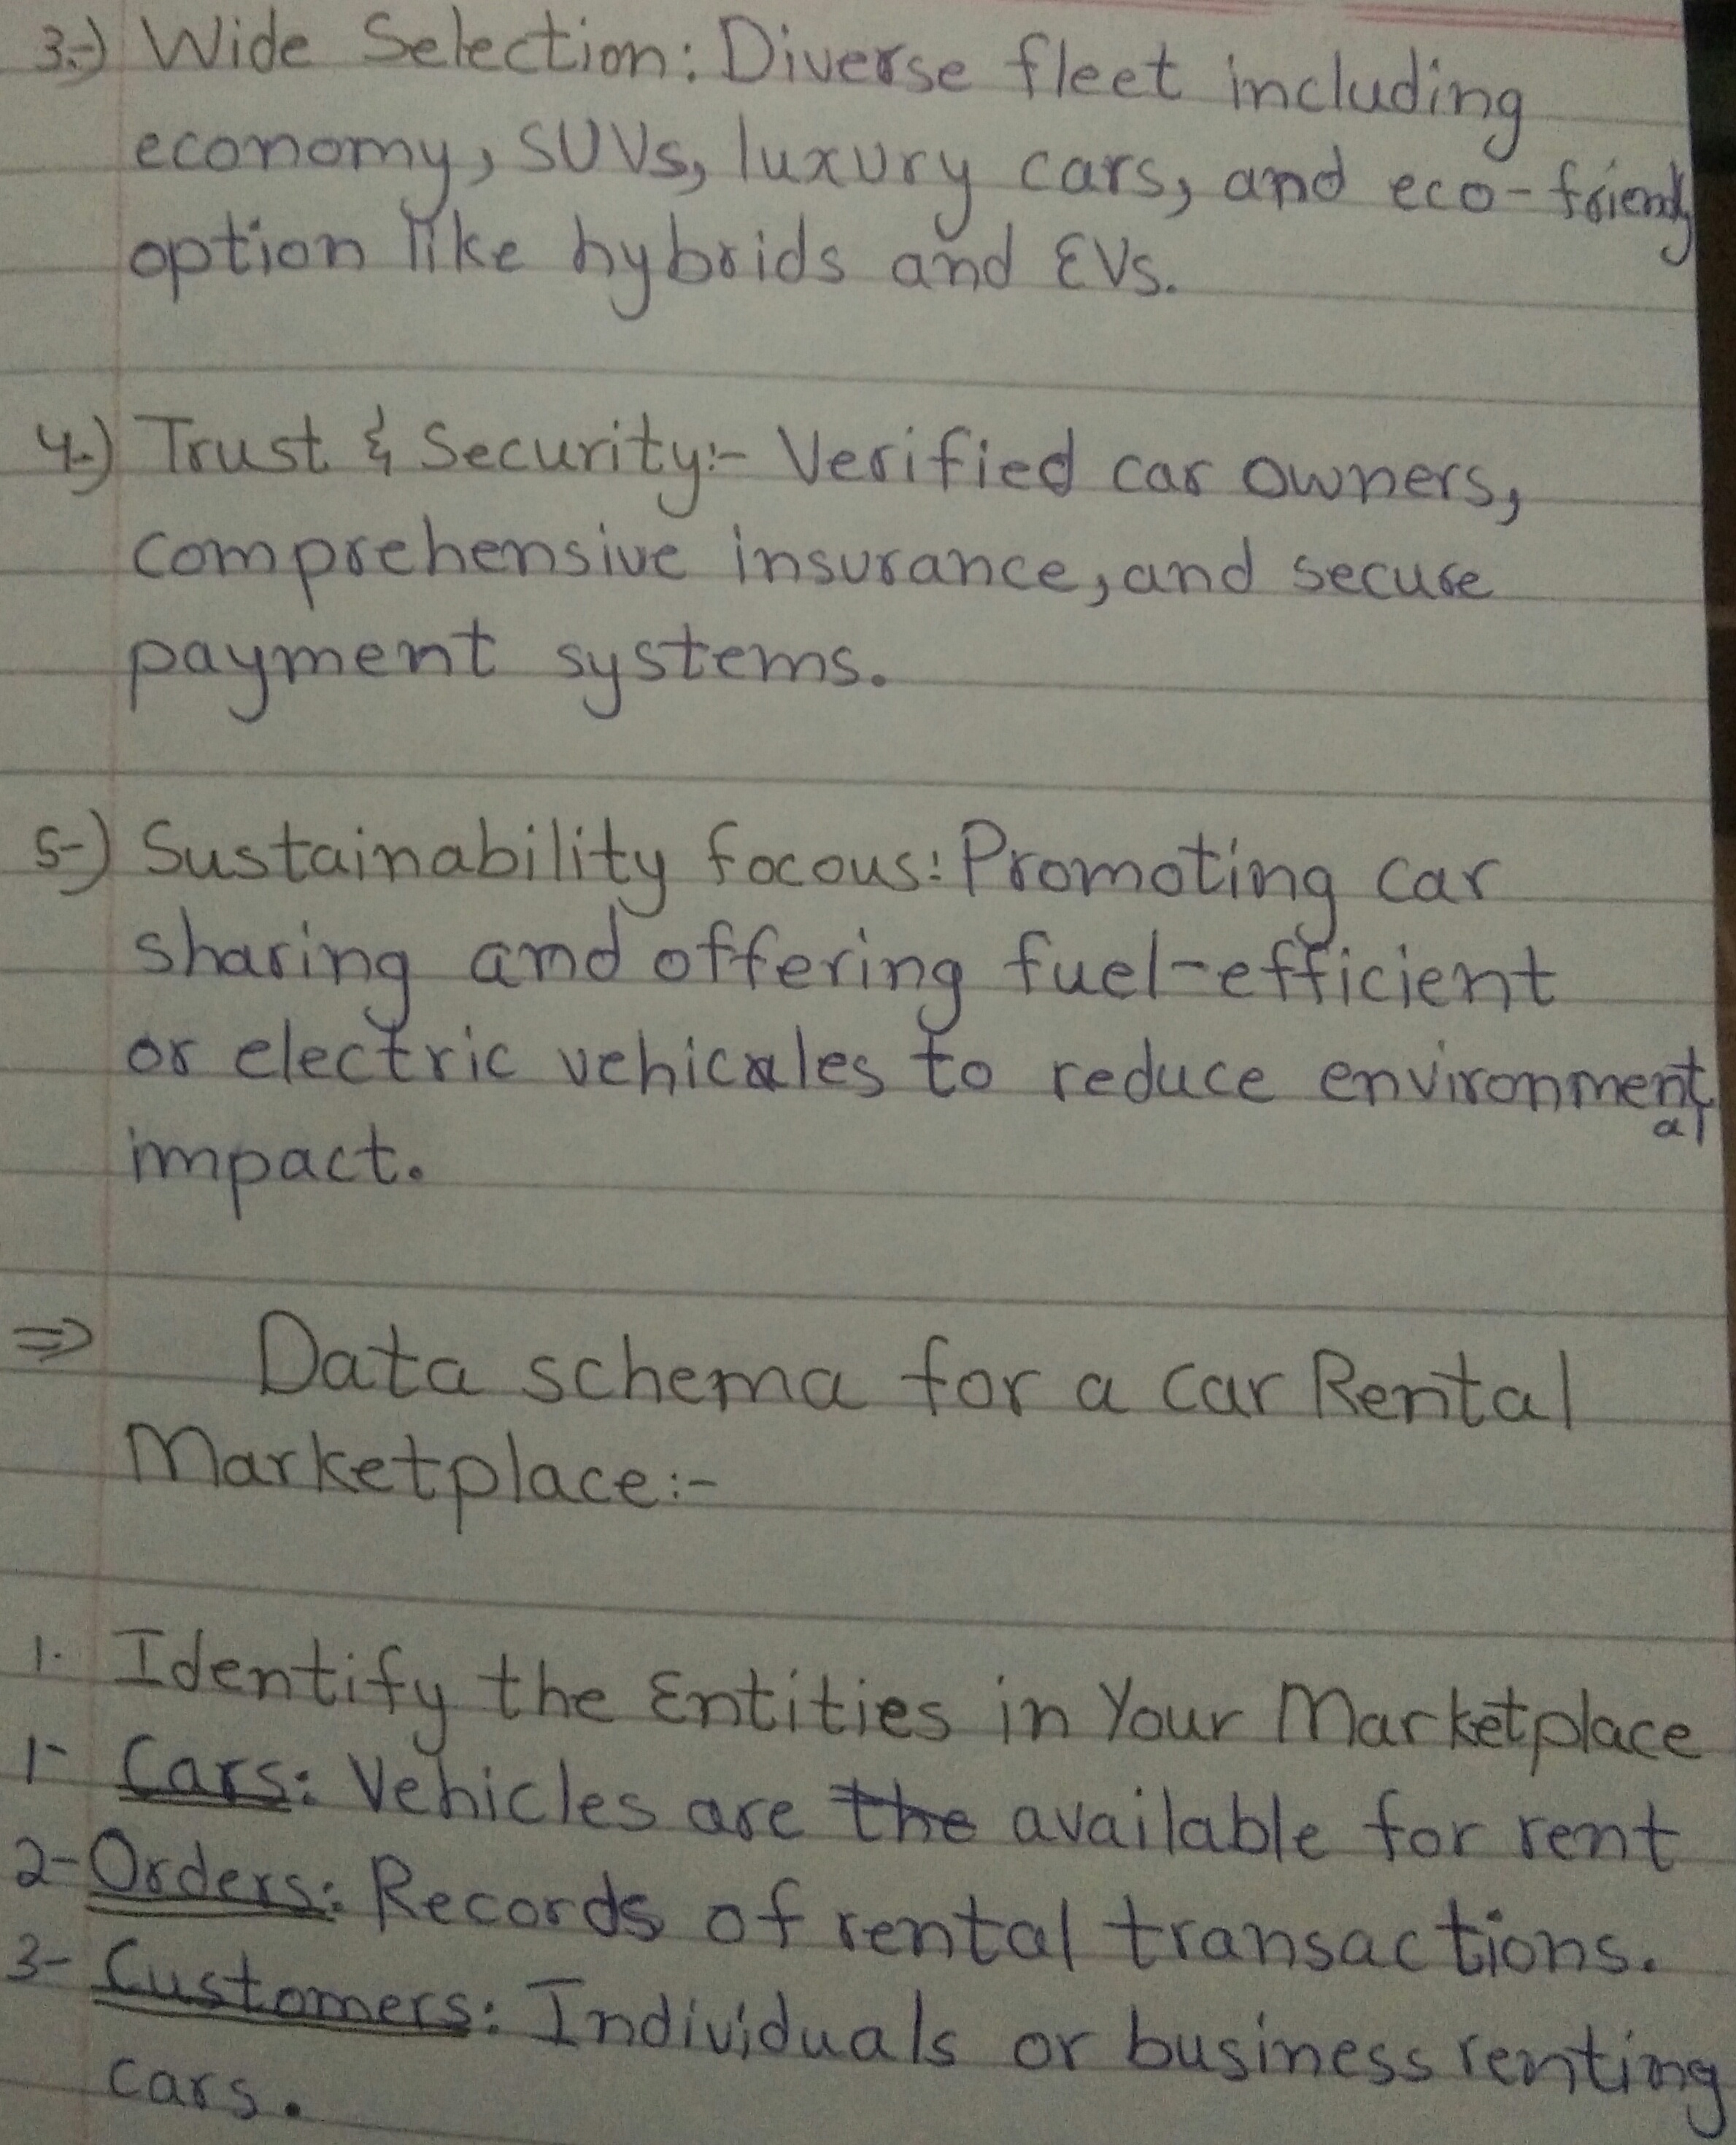 3-) Wide Selection: Diverse fleet including
economy, SUVs, luxury cars, and eco-friendly
option like hybrids and EVs.
4-) Trust & Security:- Verified car owners,
comprehensive insurance, and secure
payment systems.
5-) Sustainability focous: Promoting car
sharing and offering fuel-efficient
or electric vehicles to reduce environmental
impact.
⇒ Data schema for a car Rental
Marketplace:-
1. Identify the Entities in Your Marketplace
1- Cars: Vehicles are the available for rent
2- Orders: Records of rental transactions.
3- Customers: Individuals or business renting
cars.